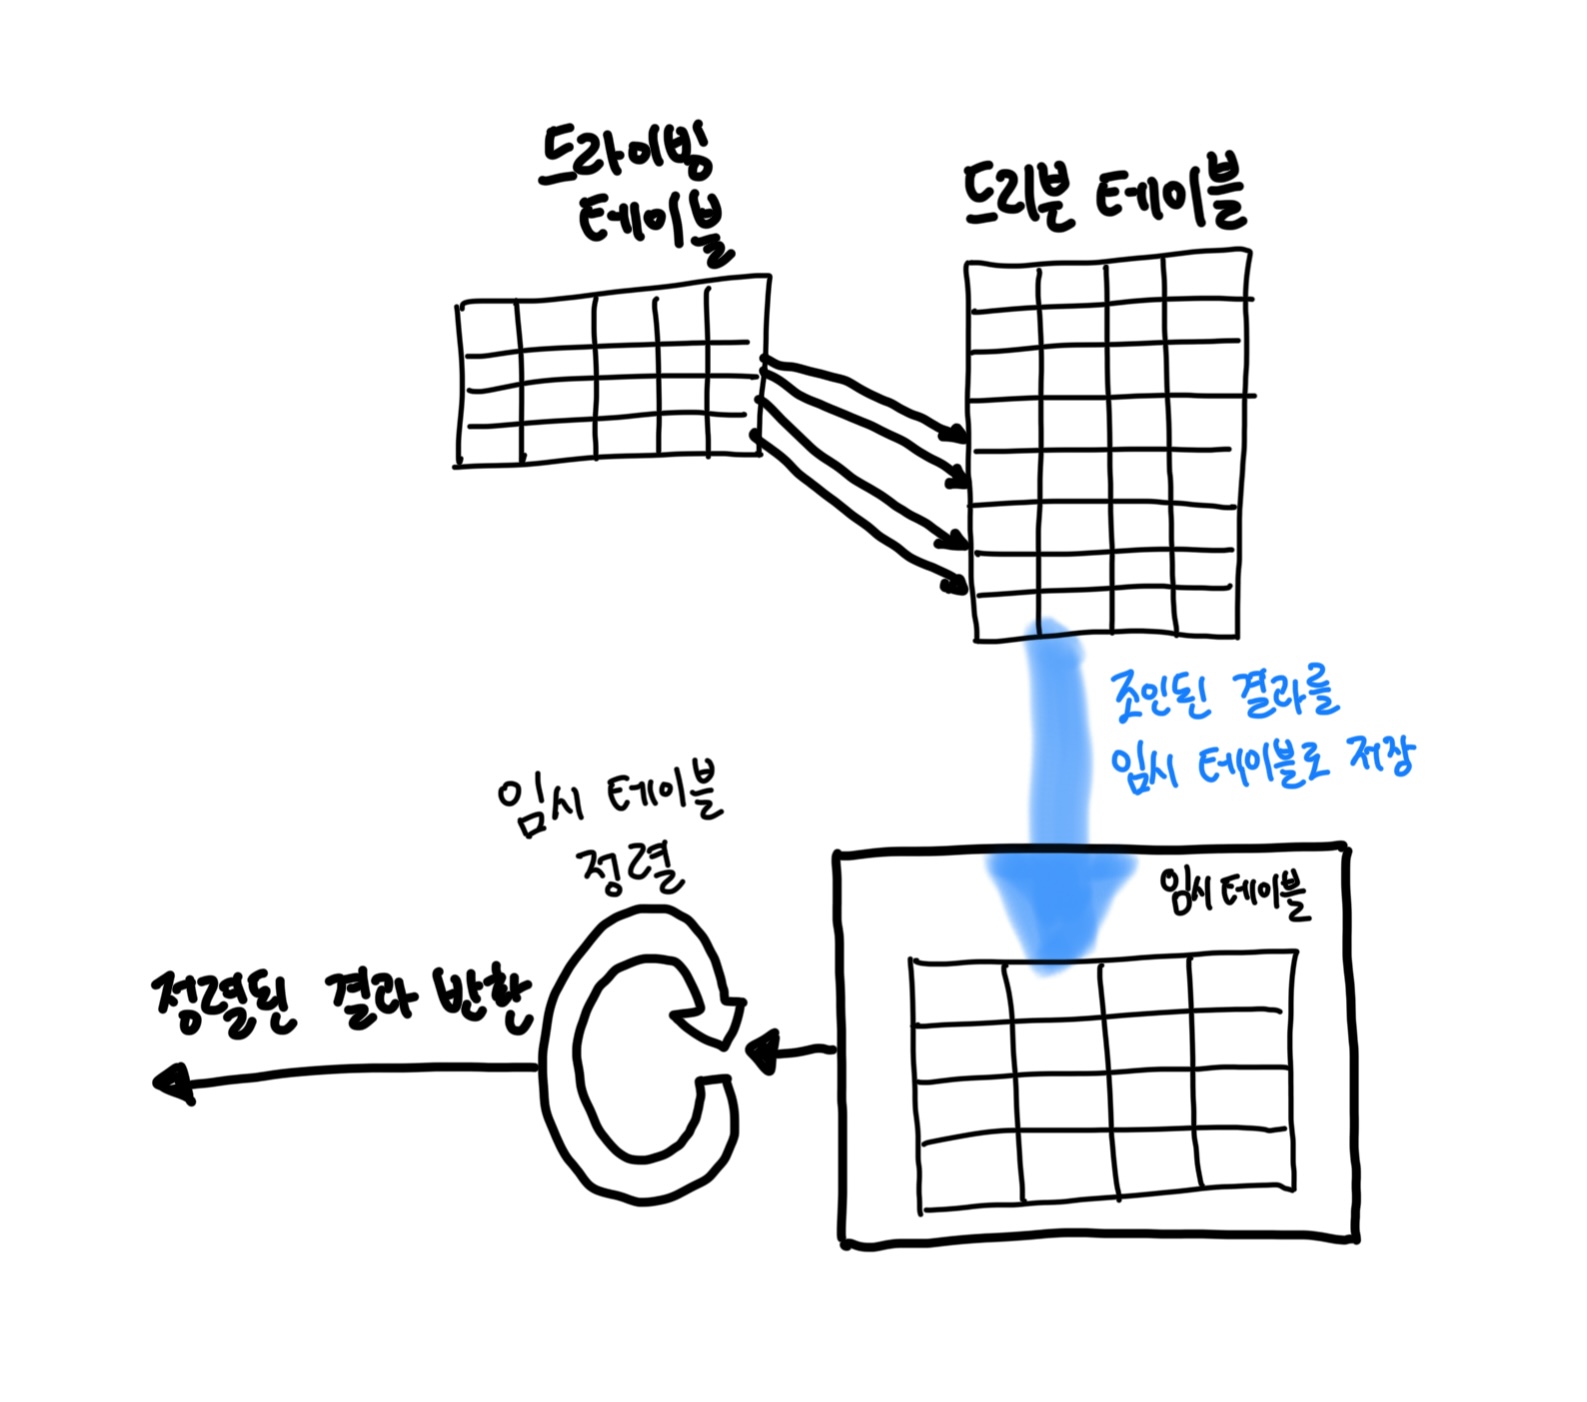 드라이빙
테이블
드리븐 테이블
조인된 결과를
임시 테이블로 저장
임시 테이블
정렬
임시 테이블
정렬된 결과 반환